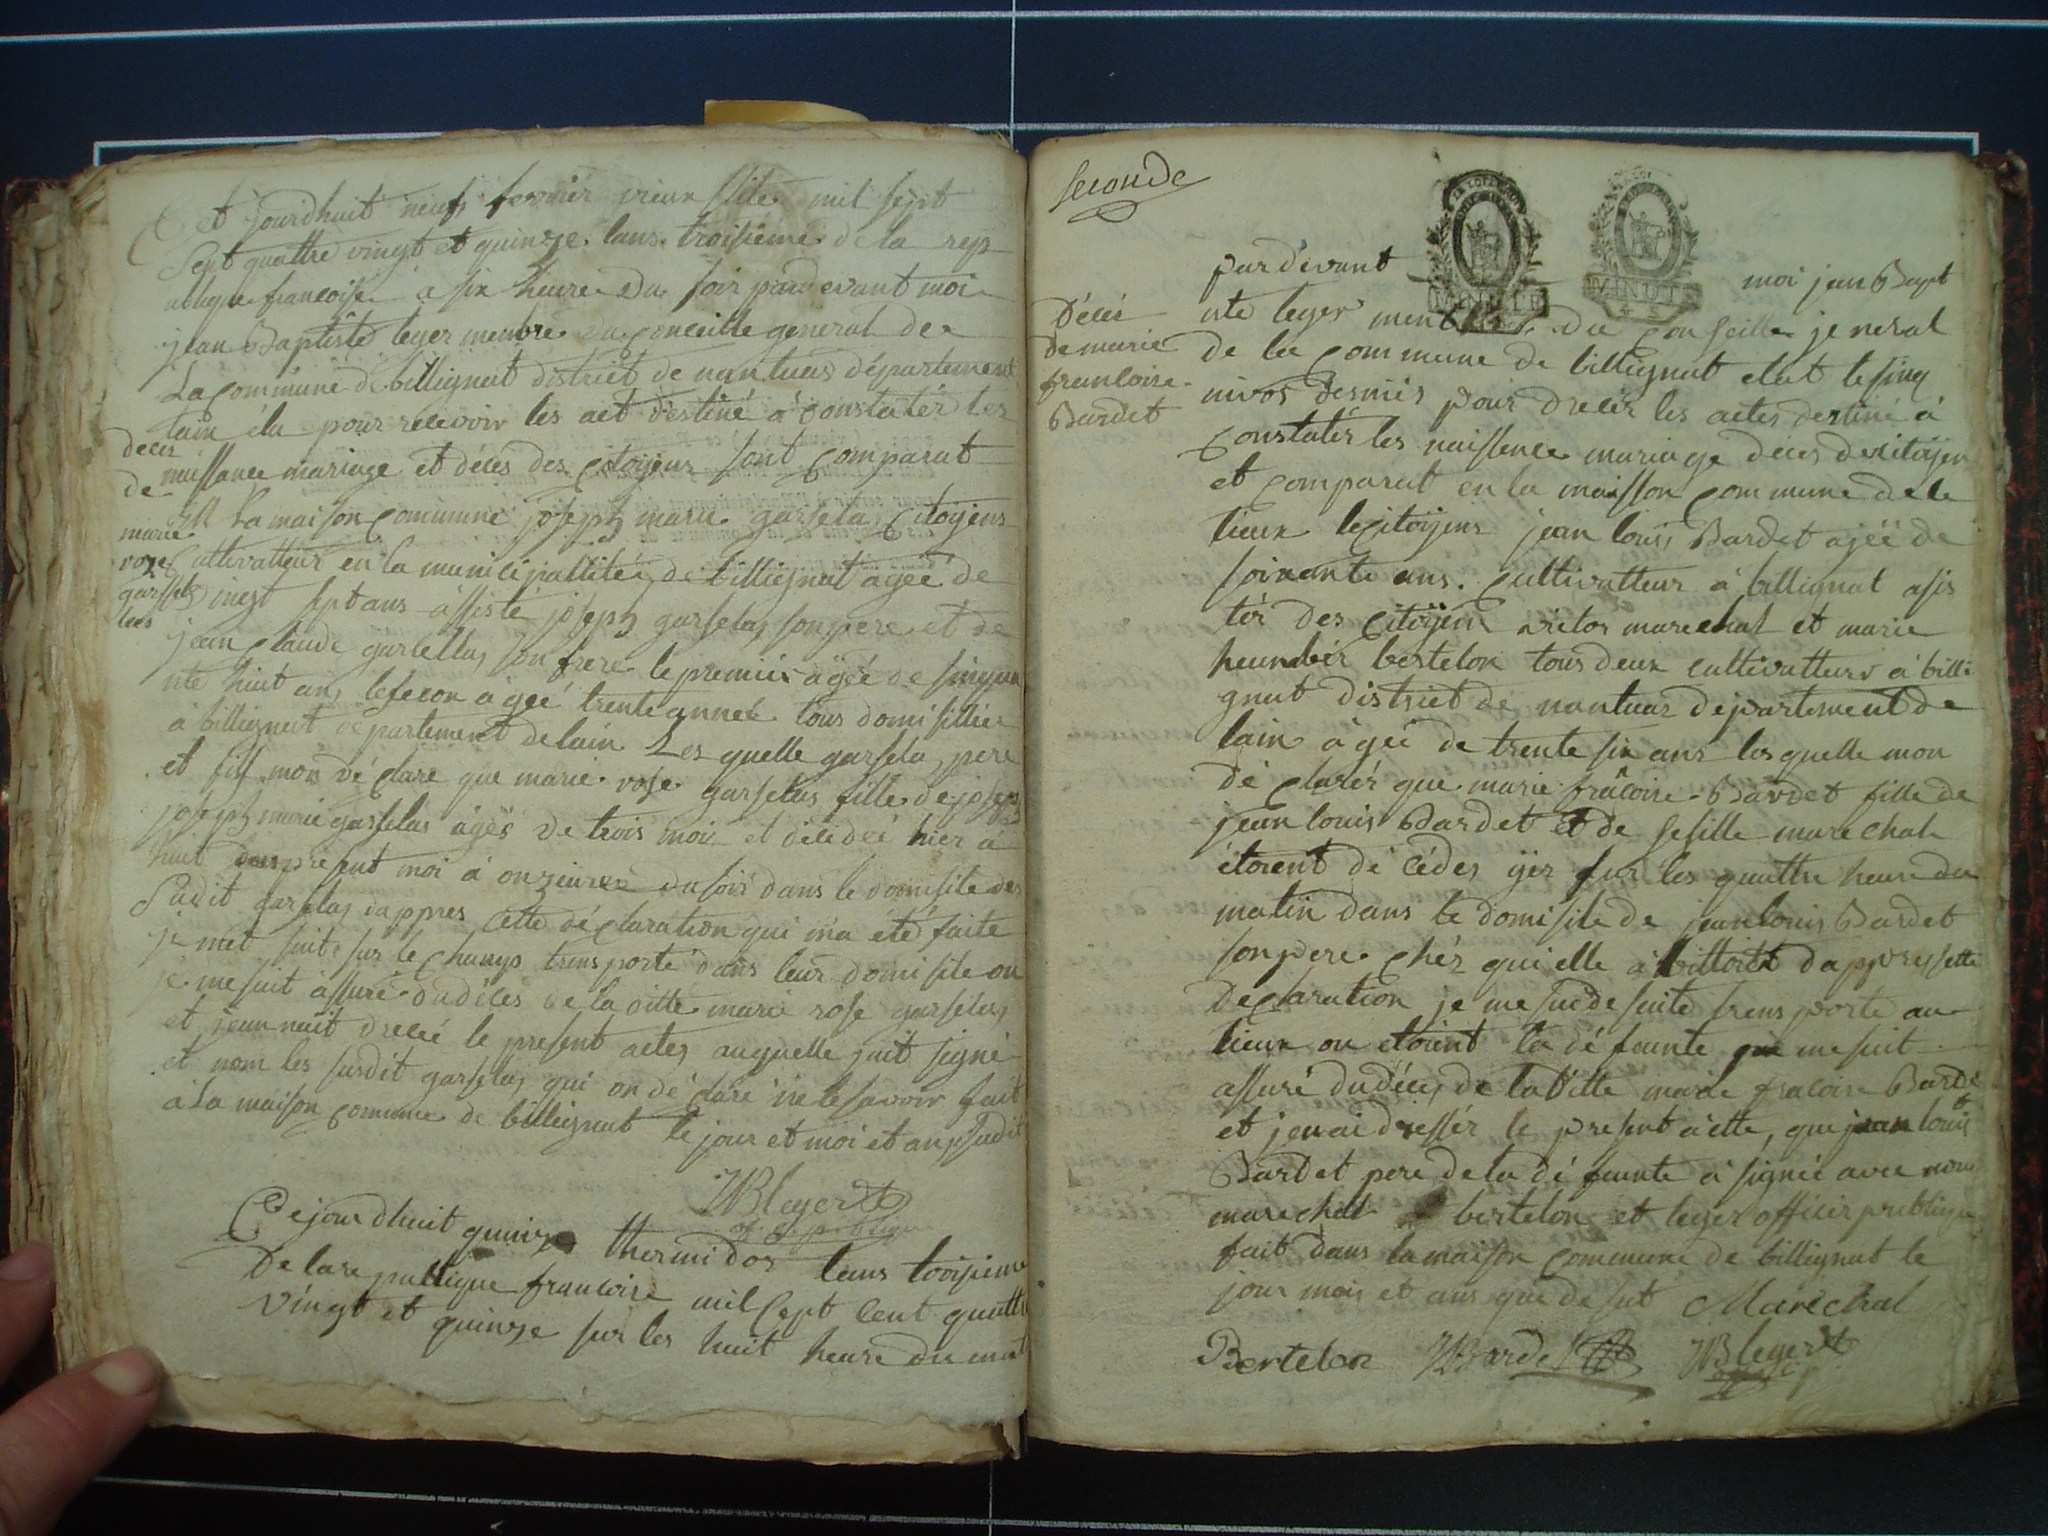 Cet jourdhuit neuf fevrier vieux stile mil sept
Sept quattre vingt et quinze lans troisieme de la rep
ublique francoise a six heure du soir pardevant moi
jean Baptiste leger membre du conceille general de
La commune de billiignat district de nantuas département
lain élu pour recevoir les act destiné a constatér les
naissance mariage et déces des citoyens sont comparut
deces
de
marie
rose
garselas
a la maison commune joseph marie garsela citoyens
Cultivatteur en la municipallitée de billiignat agée de
vingt sept ans assisté joseph garselas son pere et de
jean claude garcellas son frere le premier agée de sinqua
nte huit ans le secon agée trente année tous domisillier
à billiignat departement de lain Les quelle garsela pere
et fils mon déclare que marie rose garselas fille de joseph
joseph marie garselas agés de trois mois et décédée hier à
huit du present moi à onzeures du soir dans le domisile des
Sudit garselas dappres cette déclaration qui ma été faite
je met suite sur le champs trensporté dans leur domisile ou
je me suit assuré dudéces de la ditte marie rose garselas
et jean nait drecé le present actes auquelle jait signé
et nom les susdit garselas qui on déclaré ne le savoir fait
à la maison commune de billiignat le jour et moi et an susdit
JB leger
of. publique
Cejourdhuit quinze thermidor lans troisieme
De la republique francoise mil sept cent quattre
vingt et quinze sur les huit heure du mat
seconde
pardevant moi jean Bapt
MINUTE
MINUTE
iste leger membre du conseille jeneral
Décés
de marie
francoise
Bardet
de la commune de billiignat elut le sinq
nivos dernier pour drecér les actes destiné à
Constatér les naissence mariage déces de citoyen
et comparut en la maisson commune de le
lieux le citoyens jean louis Bardet agée de
soixante ans. cultivatteur à billiignat asis
tér des citoyen victor marechal et marie
heumbér bertelon tous deux cultivatteurs à billi
gnat district de nantuas departement de
lain agée de trente six ans les quelle mon
déclarér que marie francoise Bardet fille de
jean louis Bardet et de sesille marechal
étoient décédes yer sur les quattre heure du
matin dans le domisile de jean louis Bardet
son pere chéz qui elle abittoits dappres sette
declaration je me sui de suite trensporté au
lieux ou etoient la défeunte que me suit
assuré du déces de la ditte marie fracoise Bardet
et jen ai dressér le present actte, que jean louis
Bardet pere de la défeunte à signée avec nous
marechal bertelon et leger officier publique
fait dans la maison commune de billiignat le
jour mois et ans que de sut Maréchal
Bertelon JL Bardet JB leger